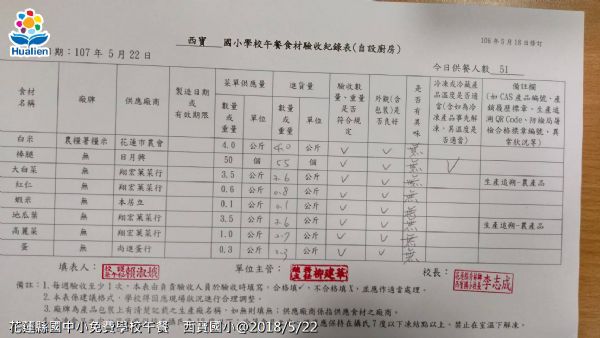 Hualien
西寶 國小學校午餐食材驗收紀錄表(自設廚房)
106年5月18日修訂
期：107年5月22日
今日供餐人數 51
食材名稱 廠牌 供應廠商 製造日期或有效期限 菜單供應量 進貨量 驗收數量、重量是否符合規定 外觀(含包裝)是否良好 是否有異味 冷凍或冷藏產品溫度是否適當(含如為冷凍產品事先解凍，其溫度是否適當) 備註欄(如CAS產品編號、產銷履歷標章、生產追溯QR Code、防檢局屠檢合格標章編號、異常狀況等)
數量或重量 單位 數量或重量 單位
白米 農糧署糧示 花蓮市農會 4.0 公斤 4.0 公斤 ✓ ✓ 無
棒腿 無 日月興 50 個 55 個 ✓ ✓ 無 ✓
大白菜 無 翔宏蔬菜行 3.5 公斤 2.6 公斤 ✓ ✓ 無 生產追朔-農產品
紅仁 無 翔宏蔬菜行 0.6 公斤 0.8 公斤 ✓ ✓ 無
蝦米 無 本居立 0.1 公斤 0.1 公斤 ✓ ✓ 無
地瓜葉 無 翔宏蔬菜行 3.5 公斤 2.6 公斤 ✓ ✓ 無 生產追朔-農產品
高麗菜 無 翔宏蔬菜行 1.0 公斤 公斤 ✓ ✓ 無
蛋 無 尚進蛋行 0.3 公斤 公斤 ✓ ✓ 無
填表人： 賴淑娥 單位主管： 柳建華 校長： 李志成
備註：1.每週驗收至少1次，本表由負責驗收人員於驗收時填寫，合格填✓，不合格填X，並應作適當處理。
2.本表係建議格式，學校得因應現場狀況進行合理調整。
3.廠牌為產品包裝上有清楚記載之生產廠名稱，如無則填無；供應廠商係指供應食材之廠商。
應保持在攝氏7度以下凍結點以上，禁止在室溫下解凍。
花蓮縣國中小免費學校午餐 西寶國小@2018/5/22